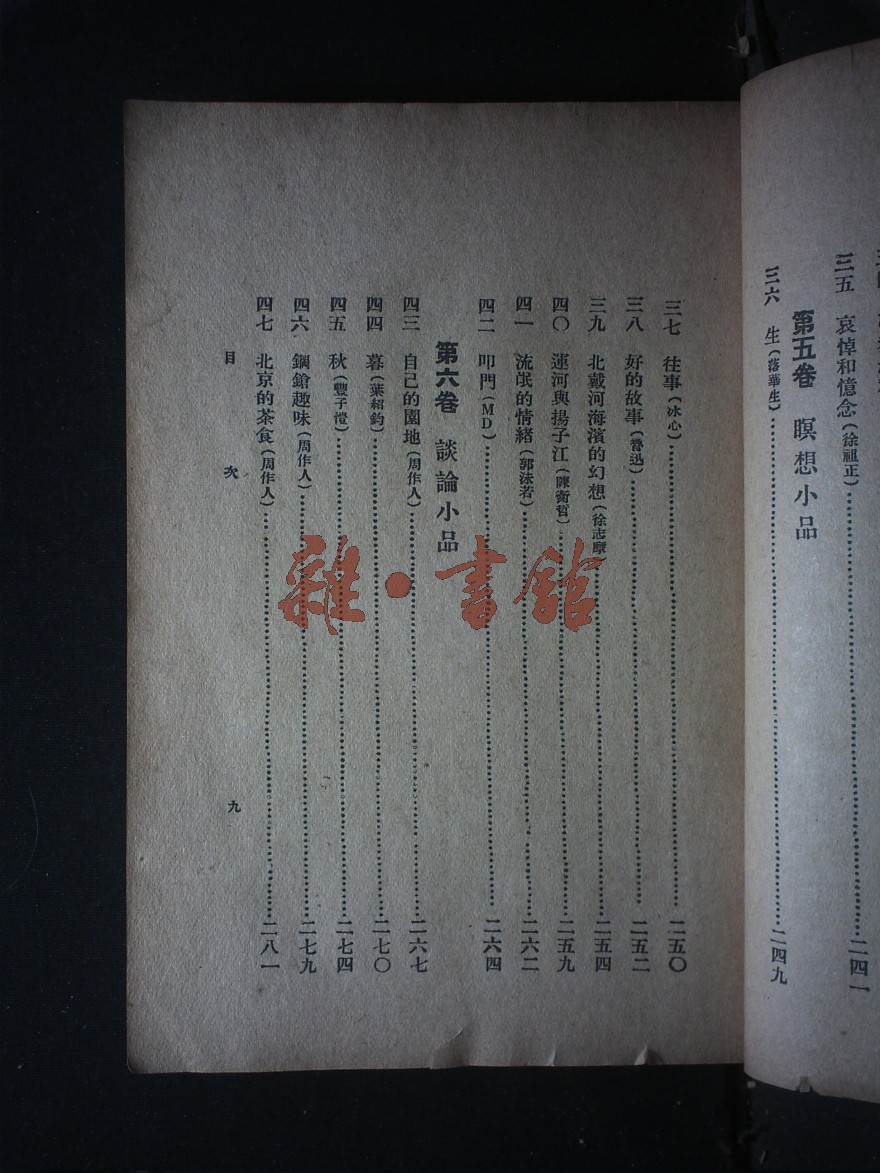 三五　哀悼和憶念(徐祖正)……二四一
第五卷　瞑想小品
三六　生(落華生)……二四九
三七　往事(冰心)……二五〇
三八　好的故事(魯迅)……二五二
三九　北戴河海濱的幻想(徐志摩)……二五四
四〇　運河與揚子江(陳衡哲)……二五九
四一　流氓的情緒(郭沫若)……二六二
四二　叩門(MD)……二六四
第六卷　談論小品
四三　自己的園地(周作人)……二六七
四四　暮(葉紹鈞)……二七〇
四五　秋(豐子愷)……二七四
四六　鋼鎗趣味(周作人)……二七九
四七　北京的茶食(周作人)……二八一
目　次　九
雜·書館